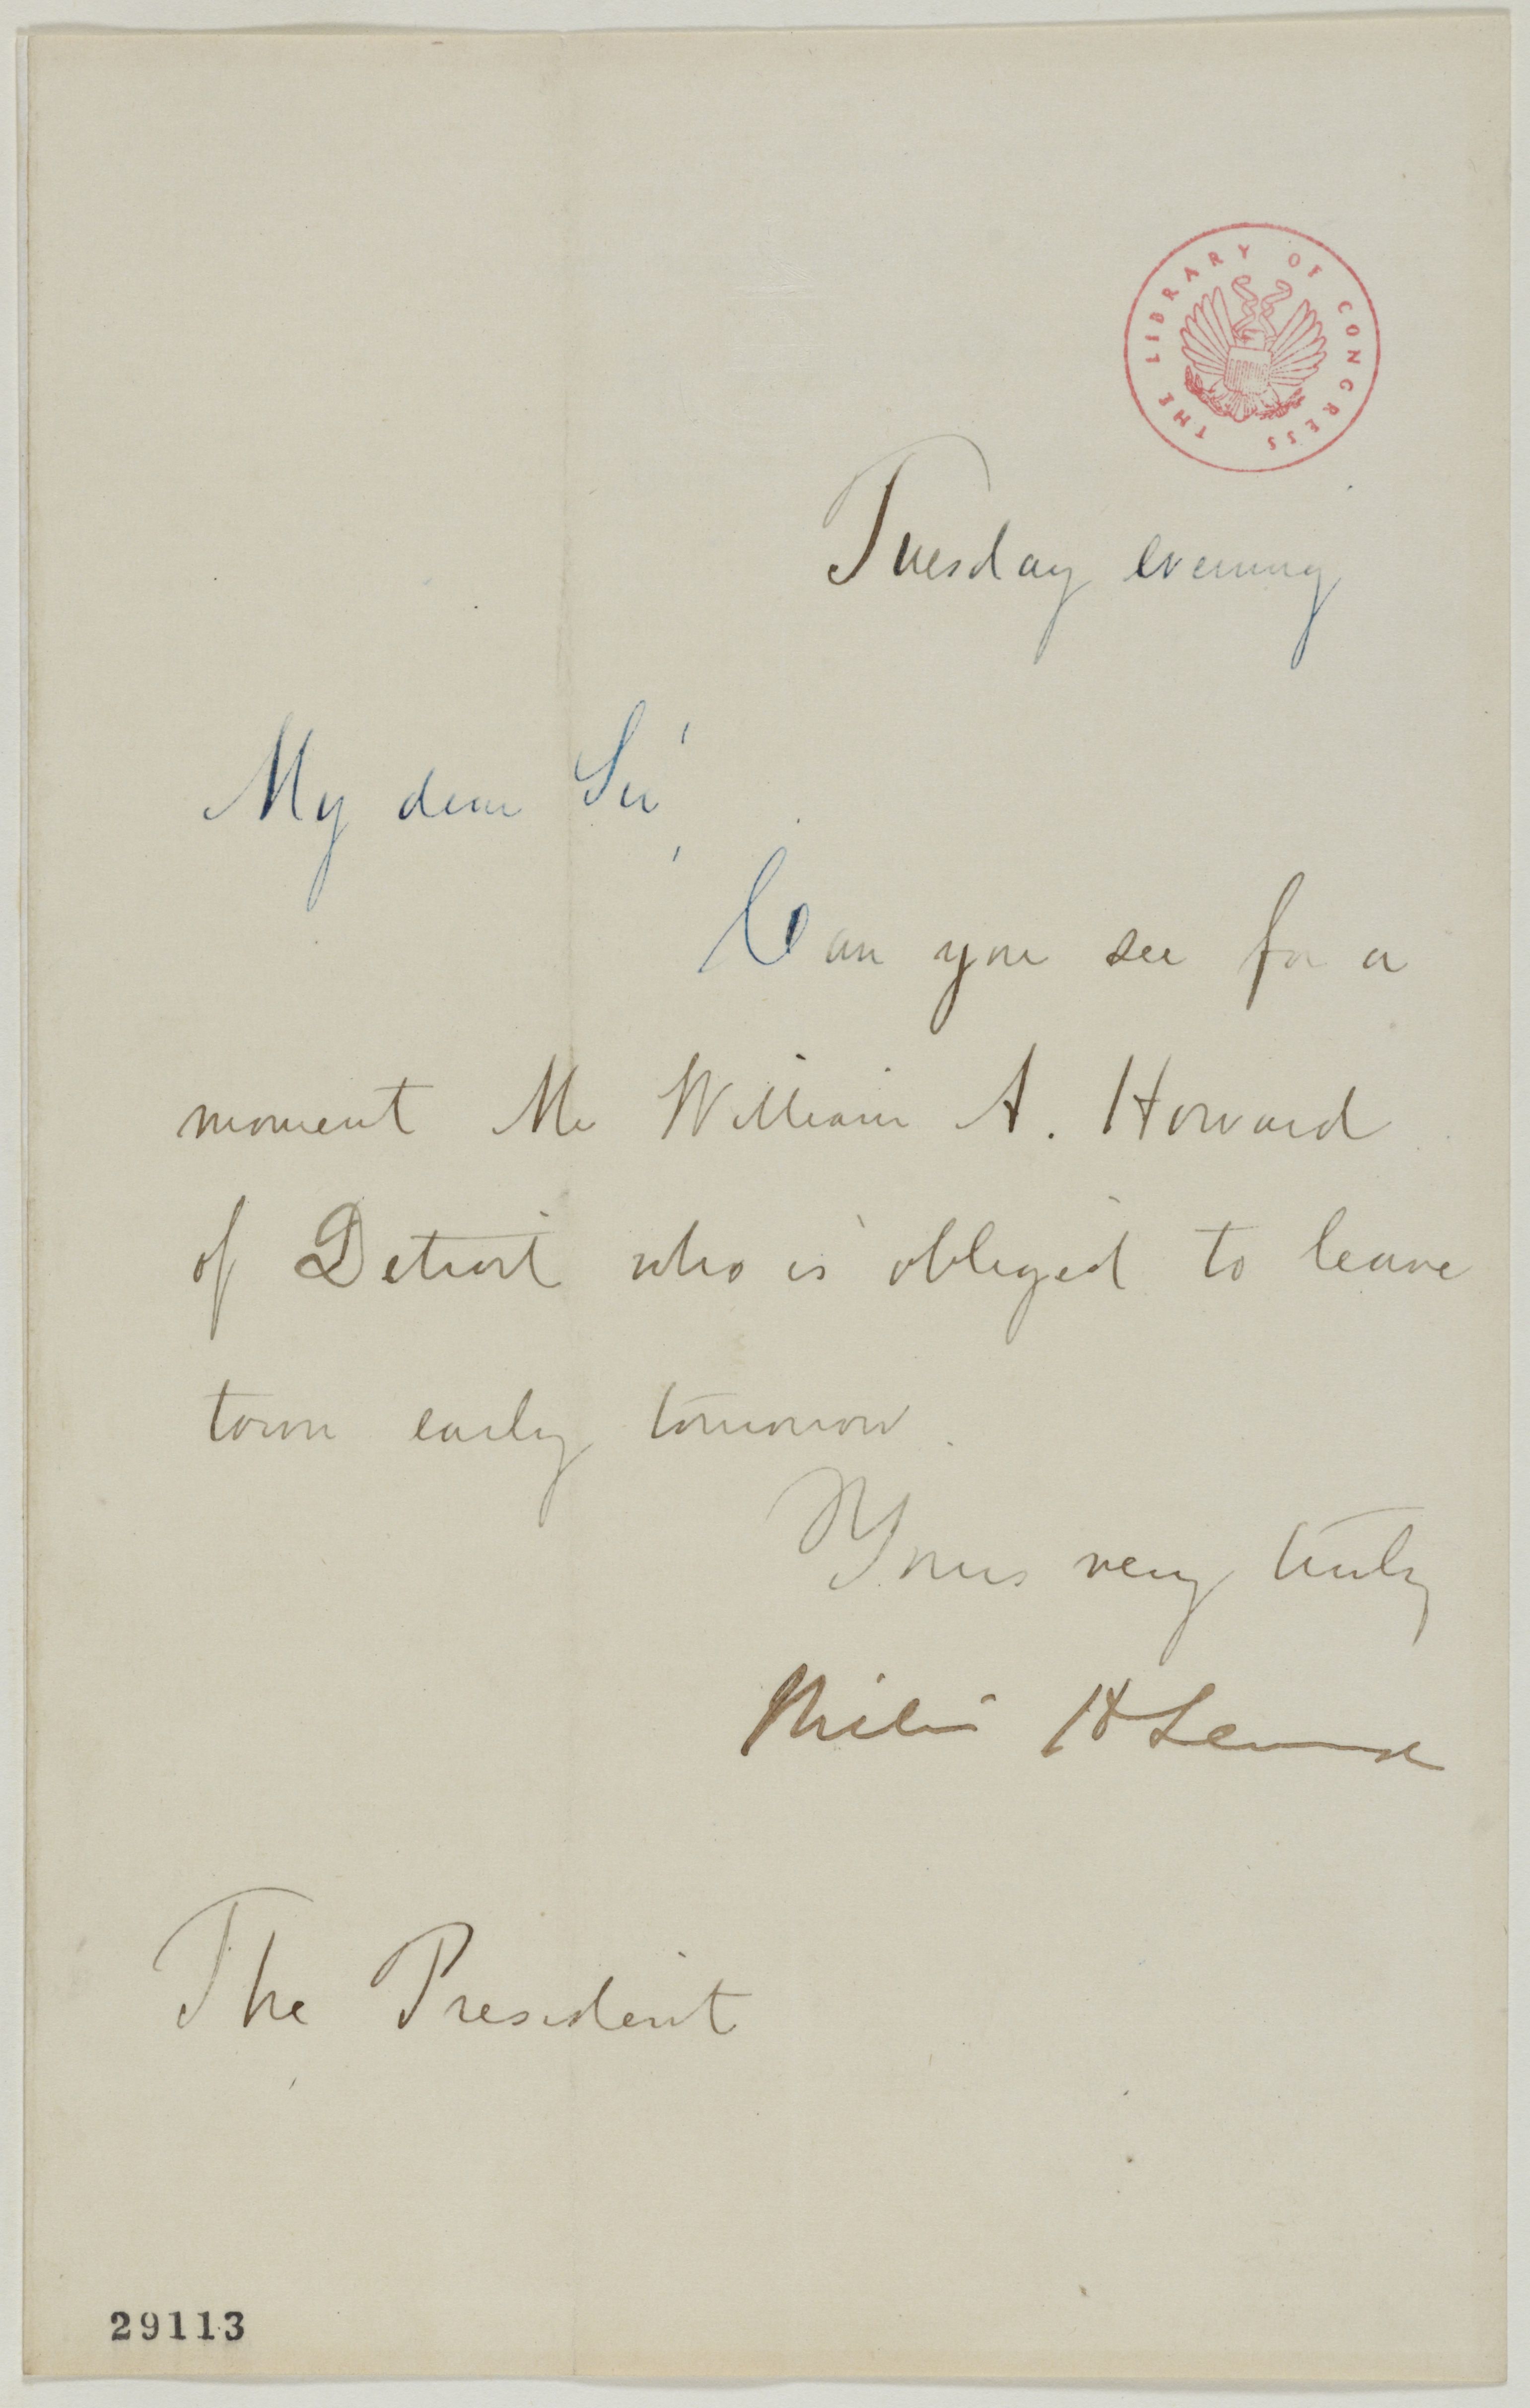 THE LIBRARY OF CONGRESS
Tuesday evening
My dear Sir,
Can you see for a
moment Mr William A. Howard
of Detroit who is obliged to leave
town early tomorrow.
Yours very truly
William H Seward
The President
29113